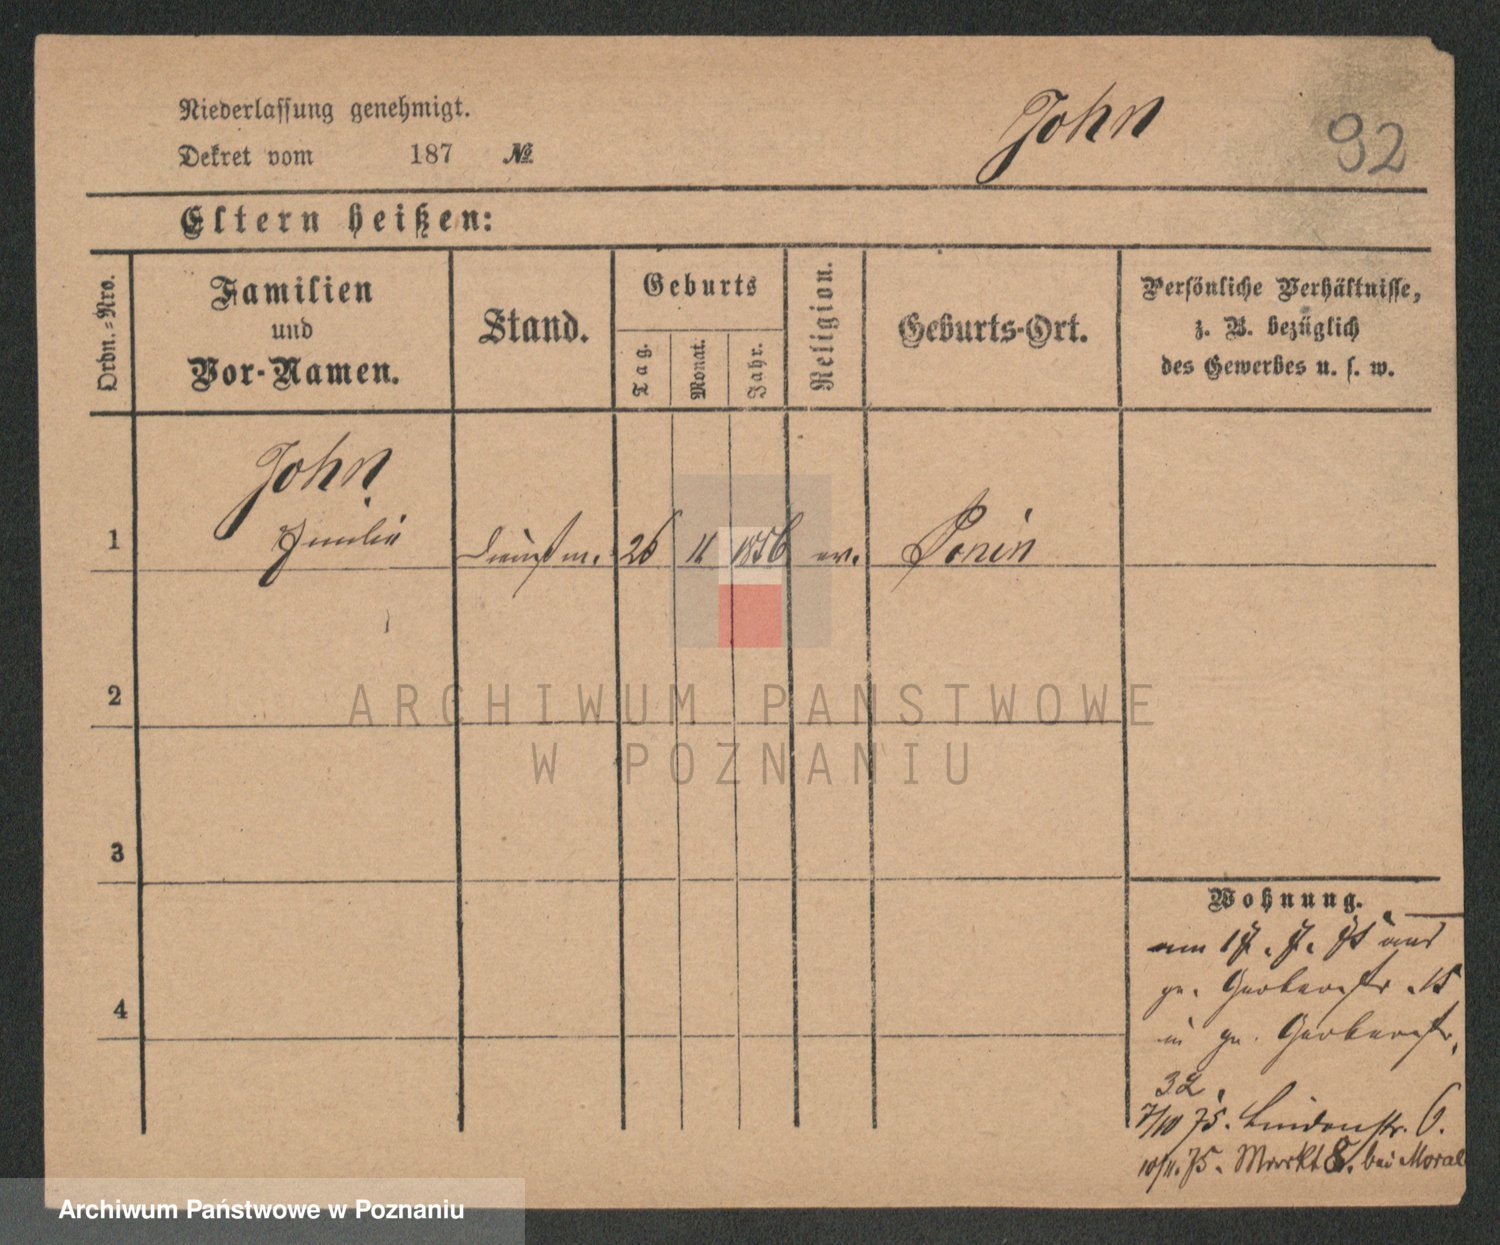 Niederlassung genehmigt.
John
92
Dekret vom 187 №
Eltern heißen:
Ordn.=Nro.
Familien
und
Vor-Namen.
Stand.
Geburts
Tag.
Monat.
Jahr.
Religion.
Geburts-Ort.
Persönliche Verhältnisse,
z. B. bezüglich
des Gewerbes u. s. w.
John
1 Emilie Dienstm. 26 11 1856 ev. Ponin
2
ARCHIWUM PAŃSTWOWE
W POZNANIU
3
Wohnung.
am 17. 7. 75 aus
gr. Gerberstr. 15
4
in gr. Gerberstr.
32.
7/10 75. Lindenstr. 6.
10/11. 75. Markt 8. bei Moral
Archiwum Państwowe w Poznaniu